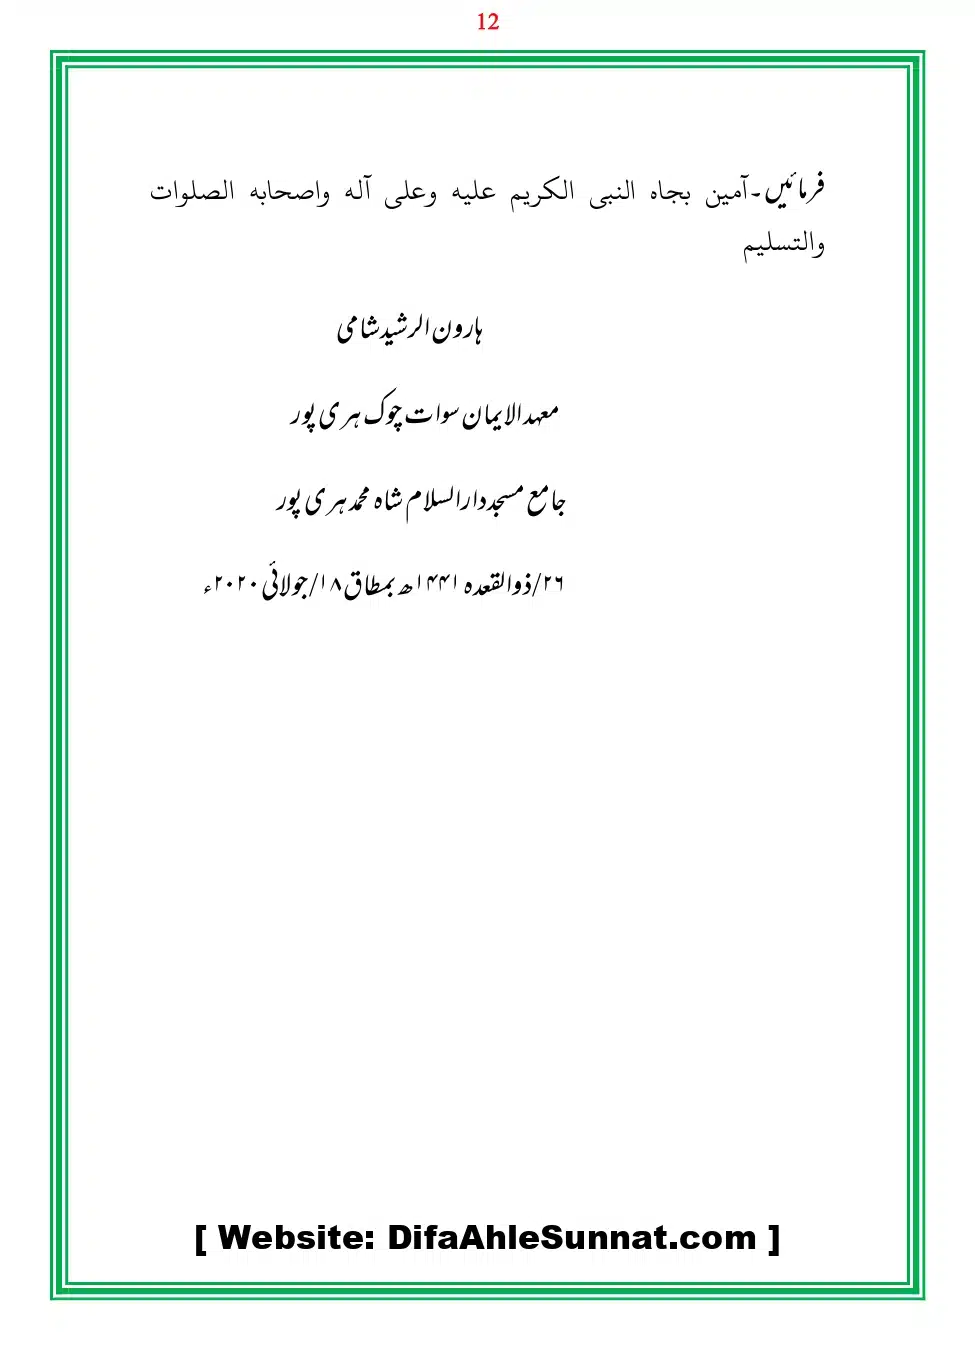 12
فرمائیں۔آمین بجاہ النبی الکریم علیه وعلی آله واصحابه الصلوات
والتسلیم
ہارون الرشید شامی
معہد الایمان سوات چوک ہری پور
جامع مسجد دارالسلام شاہ محمد ہری پور
۲۶/ذوالقعدہ ۱۴۴۱ھ بمطاق ۱۸/جولائی ۲۰۲۰ء
[ Website: DifaAhleSunnat.com ]